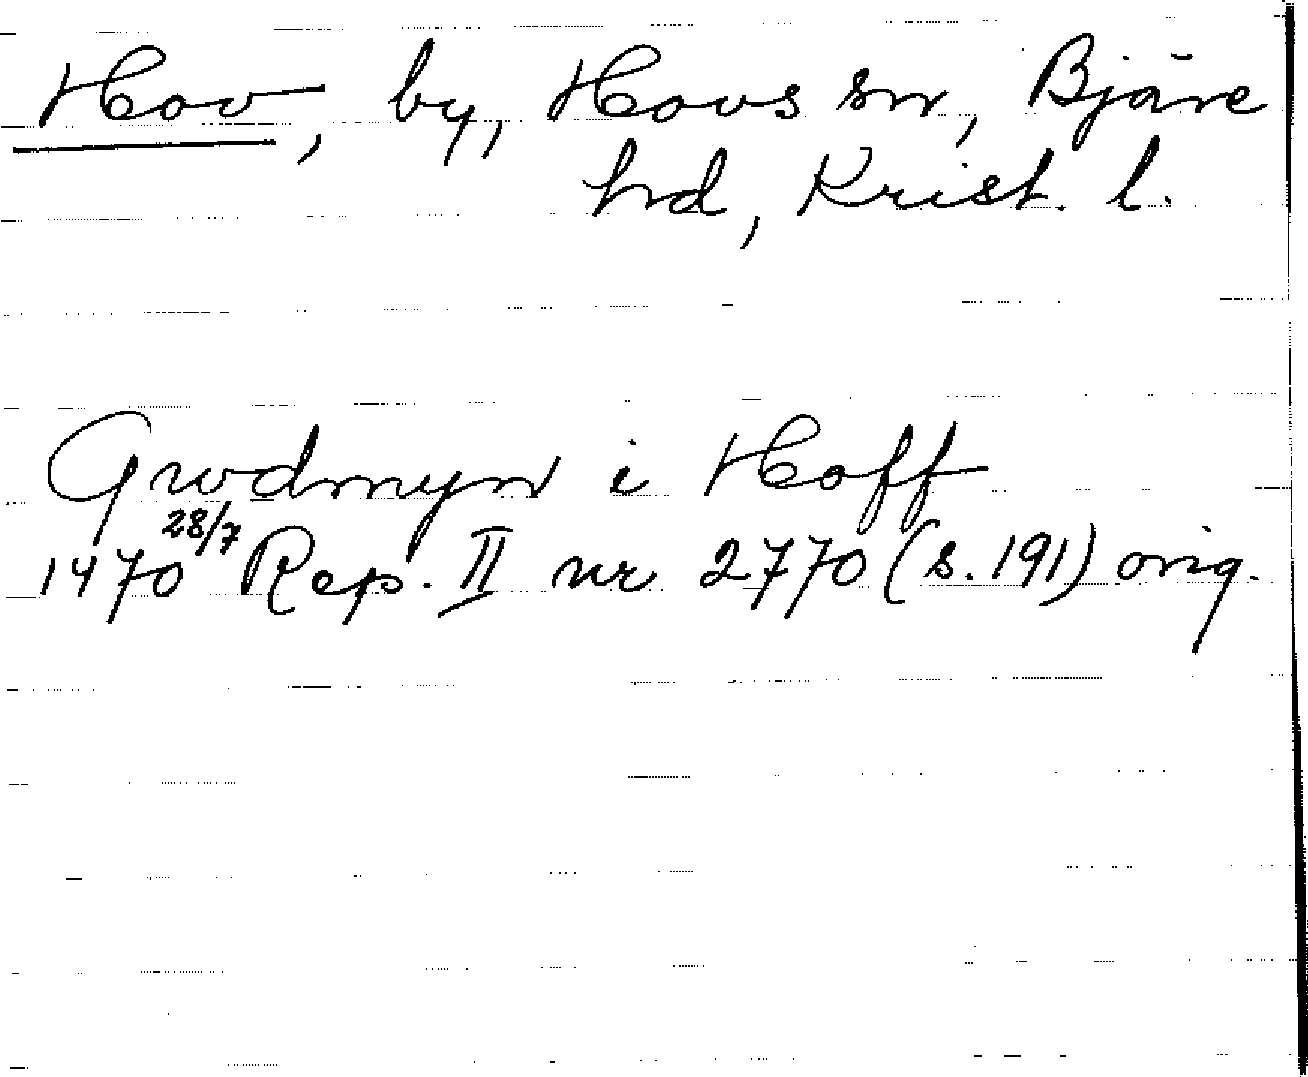 Hov, by, Hovs sn, Bjäre
hd, Krist. l.
Gwdmyn i Hoff
1470 28/7 Rep. II nr 2770 (s. 191) orig.